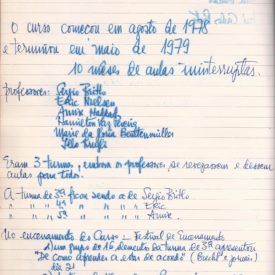 O curso começou em agosto de 1978
e terminou em maio de 1979
10 meses de aulas ininterruptas.
Professores: Sergio Britto
Eric Nielsen
Amir Haddad
Hamilton Vaz Pereira
Maria da Glória Beuttenmüller
Eram 3 turmas, embora os professores se revezassem e dessem
aulas para todos.
A turma de 3ª ficou sendo a de Sergio Britto
" " " 4ª " " " " Eric
" " " 5ª " " " " Amir
No encerramento do Curso - Festival de Encerramento
1) um grupo de 16 elementos da turma de 3ª apresentou
"De como aprendes a estar de acordo" (Brecht
dia 21